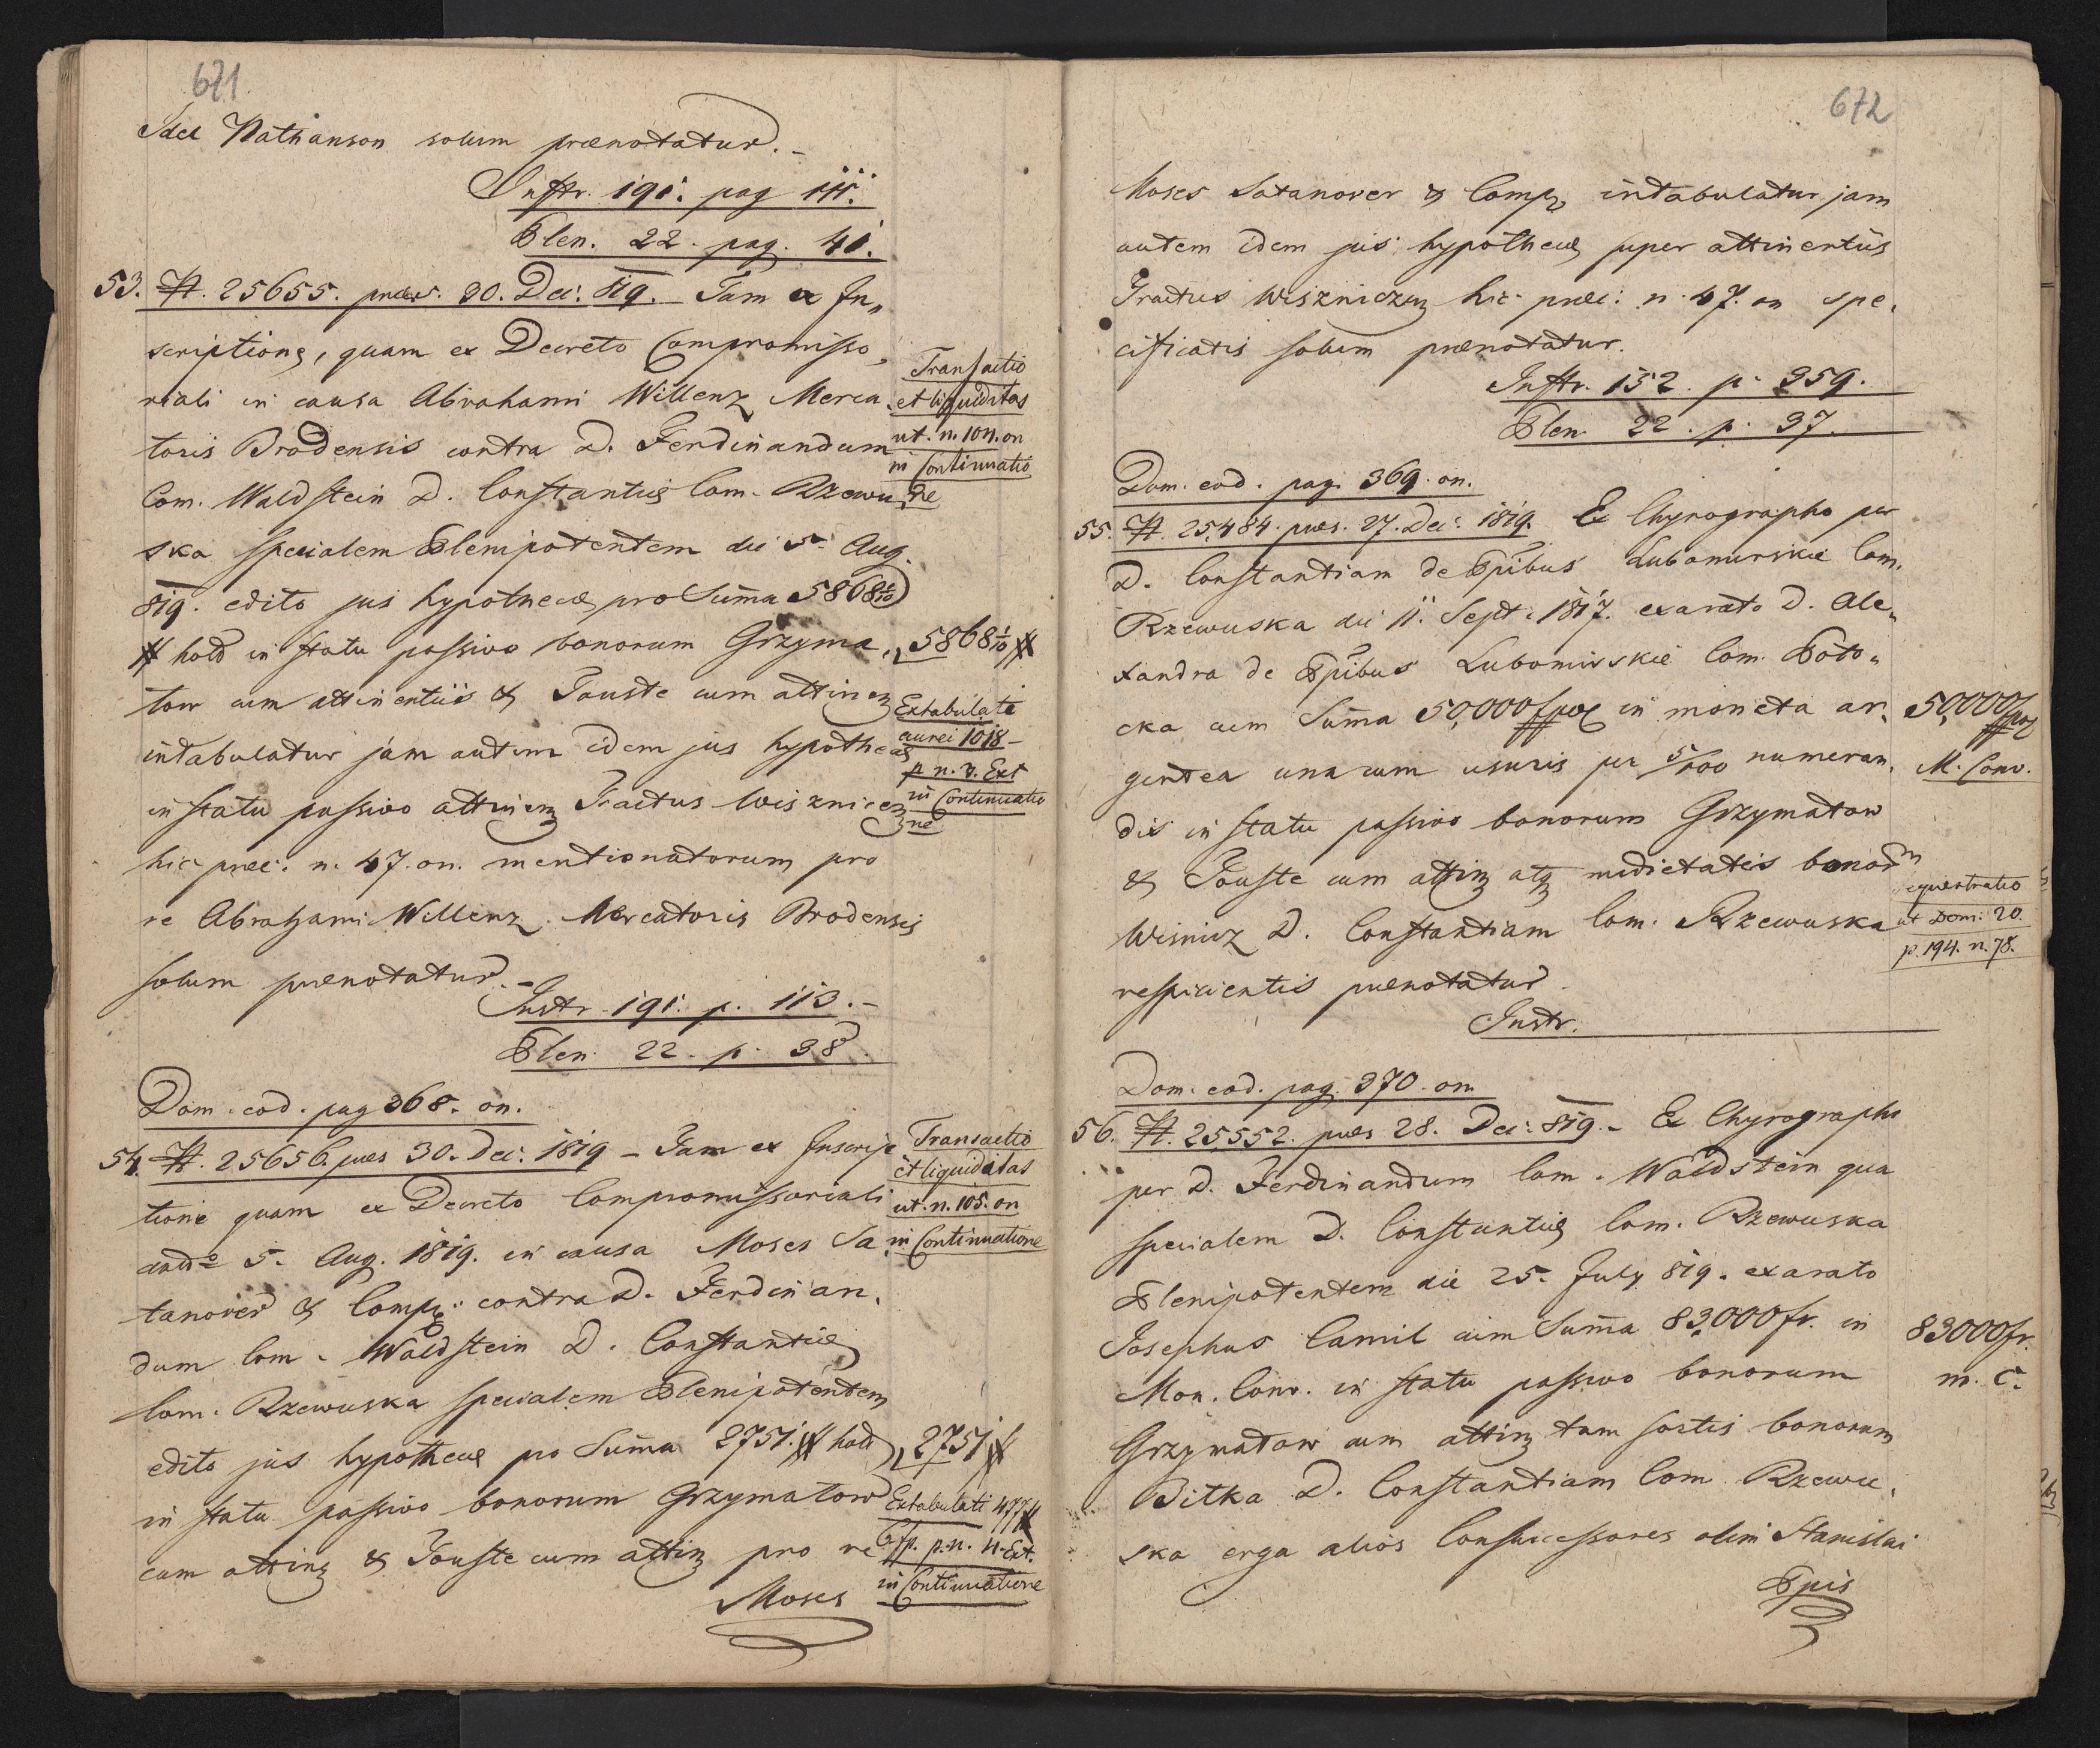 671
Idel Nathanson solum prænotatur. –
Instr. 191. pag 111.
Plen. 22. pag. 41.
53. N. 25655. præs. 30. Dec. 819. Tam ex In„
scriptione, quam ex Decreto Compromisso„
riali in causa Abrahami Willenz Merca„
toris Brodensis contra D. Ferdinandum
Com. Waldstein D. Constantiæ Com. Rzewu„
ska specialem Plenipotentem die 5. Aug.
819. edito jus hypothecæ pro Summa 5868 1/10
# holl in statu passivo bonorum Grzyma„
tow cum attinentiis & Touste cum attinen
intabulatur jam autem idem jus hypothecæ
in statu passivo attinen Tractus Wisznicen
hic præc: n. 47. on. mentionatorum pro
re Abrahami Willenz Mercatoris Brodensis
solum prænotatur. –
Instr. 191. p. 113. –
Plen. 22. p. 38.
Transactio
et liquiditas
ut. n. 104. on
in Continuatio
ne
5868 1/10 #
Extabulati
aurei 1018 –
p n. 3. Ext
in Continuatio
ne
Dom. eod. pag 368. on.
54. N. 25656. præs 30. Dec. 1819 – Tam ex Inscrip
tione quam ex Decreto Compromissoriali
5. Aug. 1819. in causa Moses Sa„
tanover & Comp. contra D. Ferdinan„
dum Com. Waldstein D. Constantiæ
Com. Rzewuska specialem Plenipotentem
edito jus hypothecæ pro Summa 2751. # holl
in statu passivo bonorum Grzymatow
cum attinen & Touste cum attin pro re
Moses
Transactio
et liquiditas
ut. n. 105. on
in Continuatione
2751 #
Extabulati 477 #
p. n. 4. Ext.
in Continuatione
672
Moses Satanover & Comp. intabulatur jam
autem idem jus hypothecæ super attinentiis
Tractus Wiszniczen hic præc: n. 47. on spe„
cificatis solum prænotatur.
Instr. 152. p. 359.
Plen. 22. p. 37.
Dom. eod. pag. 369. on.
55. N. 25,484. præs. 27. Dec. 1819. Ex Chyrographo per
D. Constantiam de Ppibus Lubomirskie Com.
Rzewuska die 11. Sept. 1817. exarato D. Ale„
xandra de Ppibus Lubomirskie Com. Poto„
cka cum Summa 50,000 in moneta ar„
gentea una cum usuris per 5/100 numeran„
dis in statu passivo bonorum Grzymatow
& Touste cum attin atq medietatis bonor
Wisnicz D. Constantiam Com. Rzewuska
respicientis prænotatur.
Instr.
50,000
M. Conv.
Sequestratio
ut Dom: 20.
p. 194. n. 78.
Dom. eod. pag. 370. on
56. N. 25,552. præs 28. Dec: 819. – Ex Chyrographo
per D. Ferdinandum Com. Waldstein qua
specialem D. Constantiæ Com. Rzewuska
Plenipotentem die 25. July 819. exarato
Josephus Camil cum Summa 83,000 fr. in
Mon. Conv. in statu passivo bonorum
Grzymatow cum attin tum sortis bonorum
Bitka D. Constantiam Com. Rzewu„
ska erga alios Consuccessores olim Stanislai
Ppis
83000 fr.
m. C.